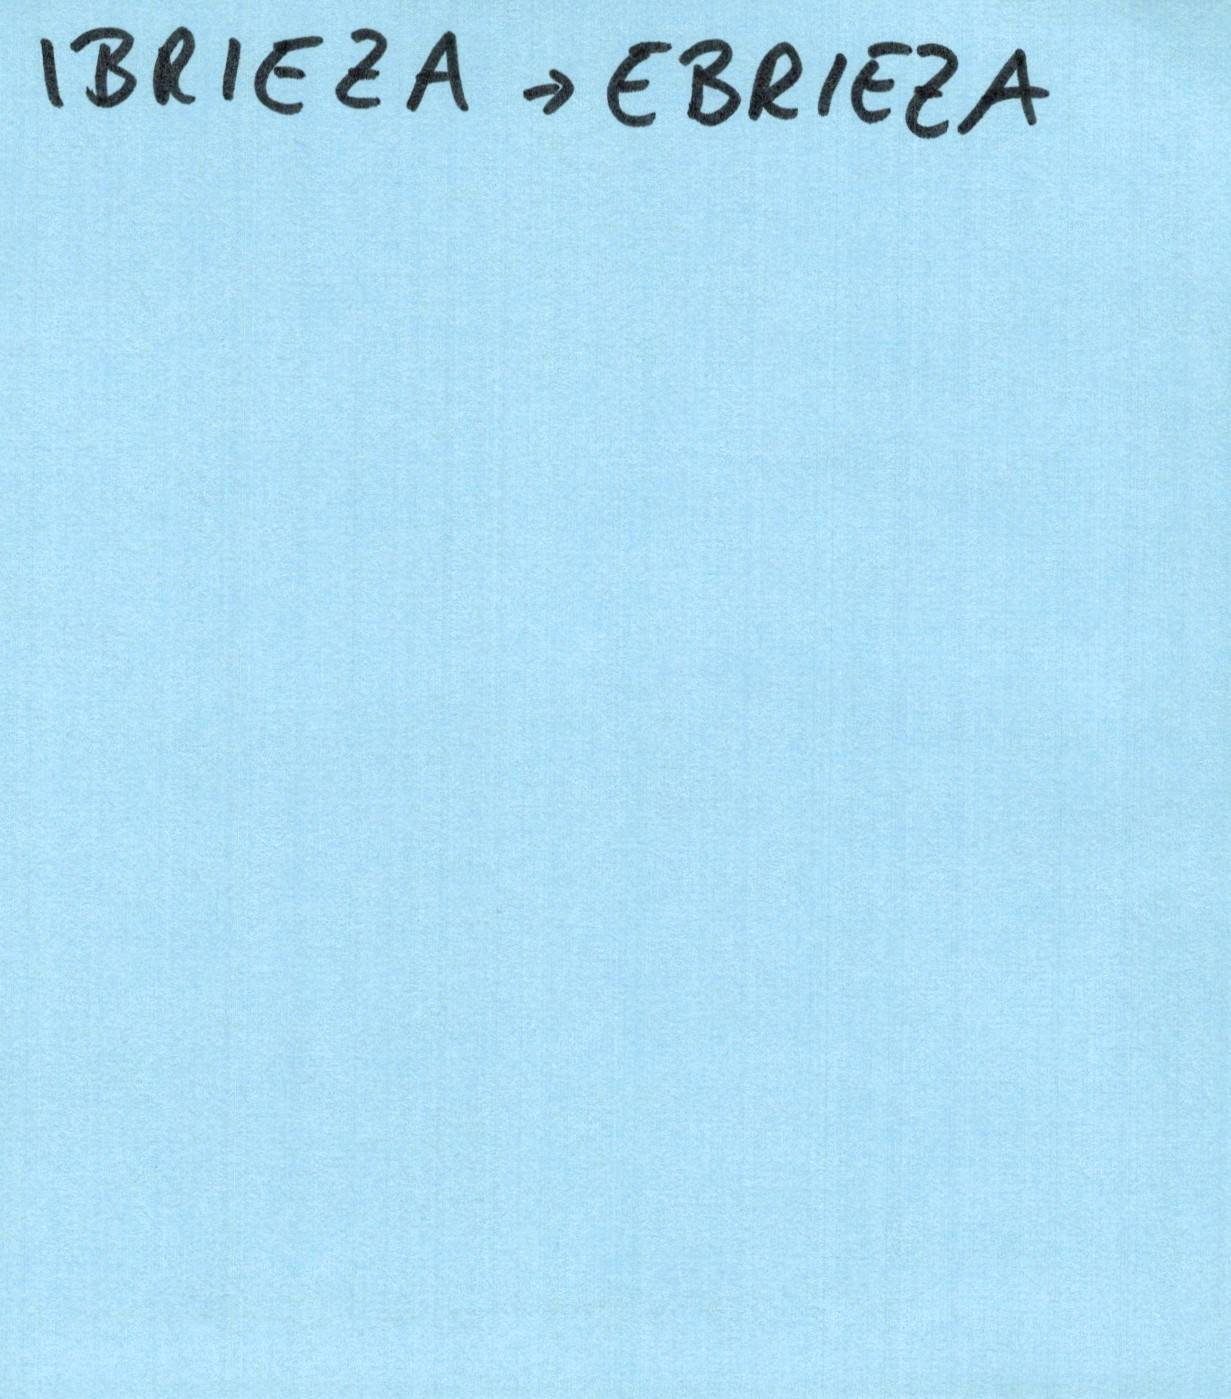 IBRIEZA → EBRIEZA